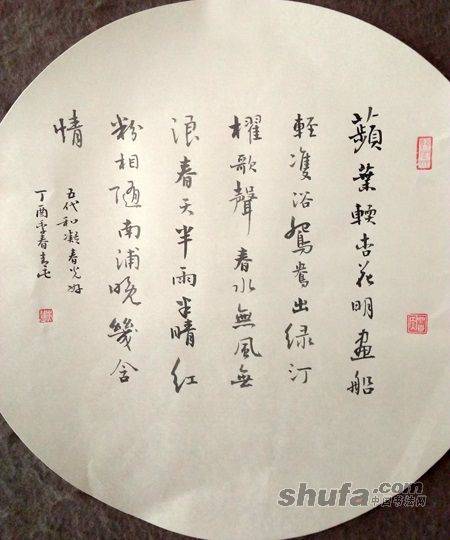 蘋葉輭杏花明畫船
輕雙浴鴛鴦出绿汀
櫂歌聲春水無風無
浪春天半雨半晴红
粉相随南浦晚幾含
情
五代和凝春光好
丁酉季春
shufa.com
中国书法网